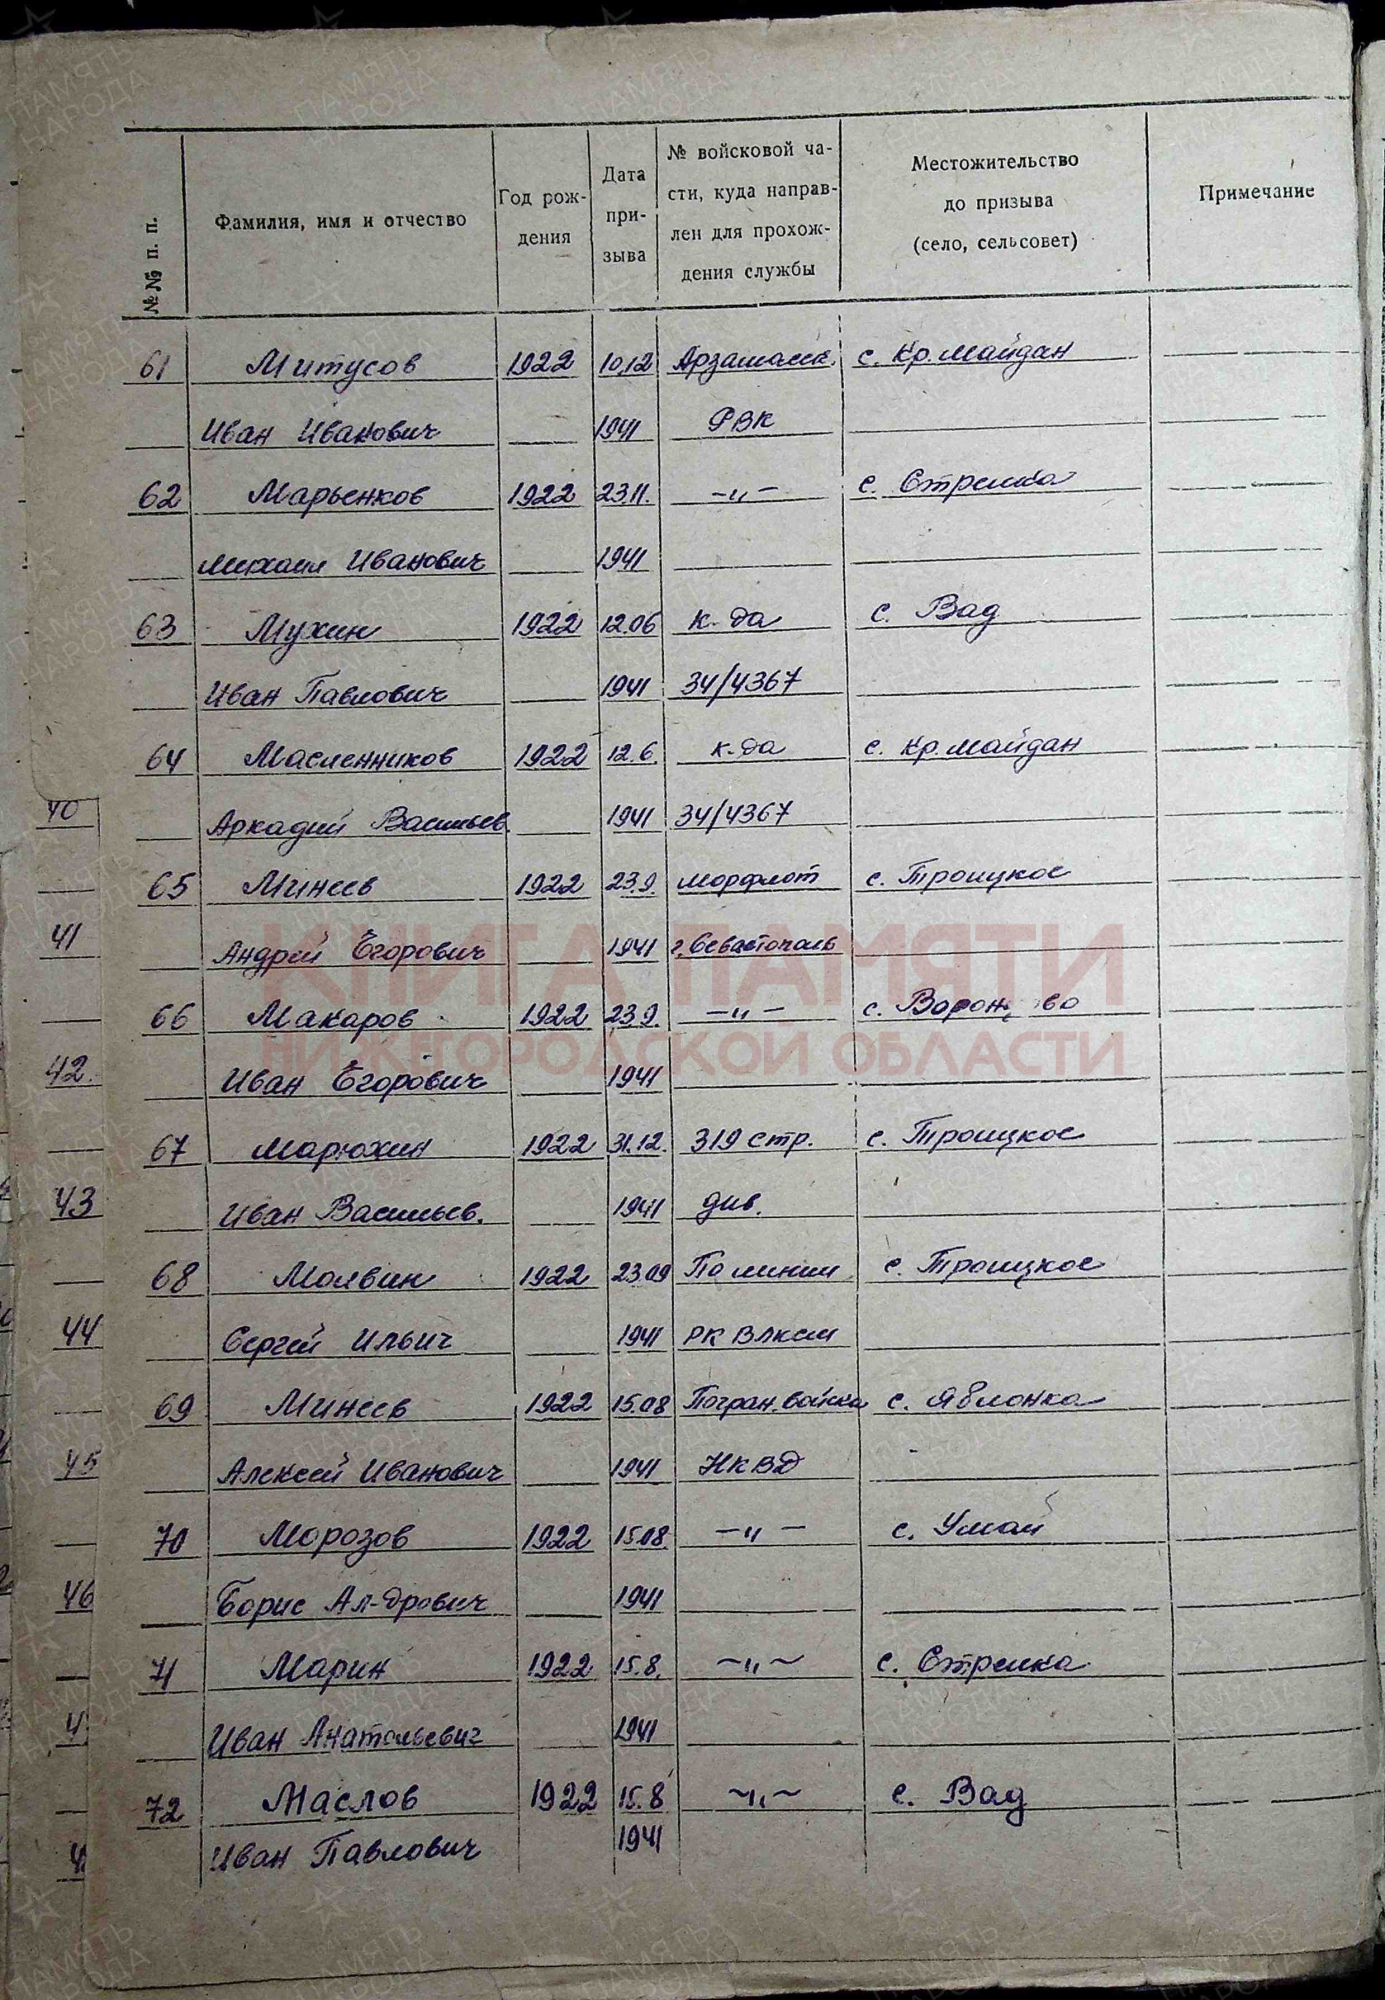 №№ п. п. Фамилия, имя и отчество Год рож-дения Дата при-зыва № войсковой ча-сти, куда направ-лен для прохож-дения службы Местожительство до призыва (село, сельсовет) Примечание
61 Митусов 1922 10.12 Арзамасск. с. Кр. майдан
Иван Иванович 1941 РВК
62 Марьенков 1922 23.11. -„- с. Стрелка
Михаил Иванович 1941
63 Мухин 1922 12.06 к-да с. Вад
Иван Павлович 1941 34/4367
64 Масленников 1922 12.6. к-да с. Кр. майдан
Аркадий Васильев. 1941 34/4367
65 Минеев 1922 23.9. морфлот с. Троицкое
Андрей Егорович 1941 г. Севастополь
66 Макаров 1922 23.9. -„- с.
Иван Егорович 1941
67 Марюхин 1922 31.12. 319 стр. с. Троицкое
Иван Васильев. 1941 див.
68 Молвин 1922 23.09 По линии с. Троицкое
Сергей Ильич 1941 РК ВЛКСМ
69 Минеев 1922 15.08 Погран. войска с. Яблонка
Алексей Иванович 1941 НКВД
70 Морозов 1922 15.08. -„- с. Умай
Борис Ал-дрович 1941
71 Марин 1922 15.8. ~„~ с. Стрелка
Иван Анатольевич 1941
72 Маслов 1922 15.8 ~„~ с. Вад
Иван Павлович 1941
40
41
42.
43
44
45
46
КНИГА ПАМЯТИ
НИЖЕГОРОДСКОЙ ОБЛАСТИ
ПАМЯТЬ НАРОДА